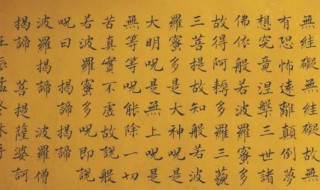 無罣礙無罣礙故無
有恐怖遠離顛倒夢
想究竟涅槃三世諸
佛依般若波羅蜜多
故得阿耨多羅三藐
三菩提故知般若波
羅蜜多是大神呪是
大明呪是無上呪是
無等等呪能除一切
苦真實不虛故說般
若波羅蜜多呪即說
呪曰 揭諦 揭諦
波羅揭諦 波羅僧
揭諦 菩提薩婆訶